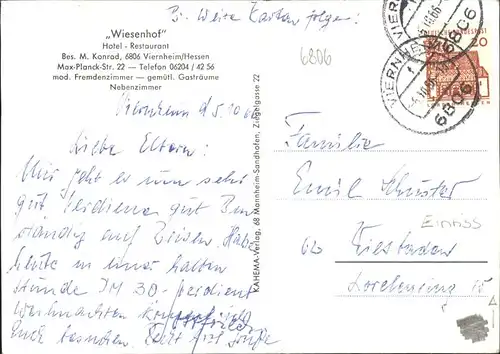 Bi. Weite Karten folgen!
„Wiesenhof"
Hotel - Restaurant
Bes. M. Konrad, 6806 Viernheim/Hessen
Max-Planck-Str. 22 — Telefon 06204 / 42 56
mod. Fremdenzimmer — gemütl. Gasträume
Nebenzimmer
Viernheim d. 5.10.66
Liebe Eltern!
Mir geht es nun sehr
gut verdiene gut Bin
ständig auf Reisen. Habe
heute in einer halben
Stunde DM 30,- verdient
Weihnachten
Euch besuchen. Recht viel Grüße
KAHEMA-Verlag, 68 Mannheim-Sandhofen, Ziegelgasse 22
6806
DEUTSCHE BUNDESPOST
20
VIERNHEIM
6806
VIERNHEIM
6806
Familie
Emil Schuster
Einriss
62 Wiesbaden
Loreleyring